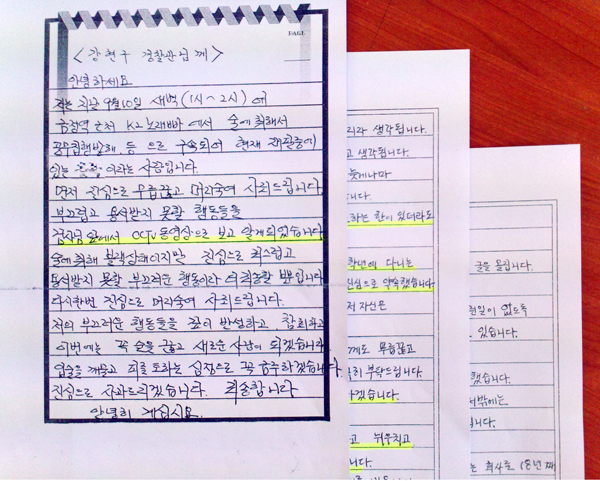 PAGE
< 강현구 경찰관님께 >
안녕하세요
저는 지난 9월10일 새벽 (1시~2시) 에
금정역 근처 K2노래빠 에서 술에 취해서
공무집행방해 등 으로 구속되어 현재 재판중에
있는 이라는 사람입니다.
먼저 진심으로 무릎꿇고 머리숙여 사죄드립니다.
부끄럽고 용서받지 못할 행동들을
검사님 앞에서 CCTV동영상으로 보고 알게되었습니다
술에취해 블랙상태이지만 진심으로 죄스럽고
용서받지 못할 부끄러운 행동이라 더죄송할 뿐입니다
다시한번 진심으로 머리숙여 사죄드립니다.
저의 부끄러운 행동들을 깊이 반성하고, 참회하고
이번에는 꼭 술을 끊고 새로운 사람이 되겠습니다.
입술을 깨물고 피를 토하는 심정으로 꼭 금주하겠습니다.
진심으로 사과드리겠습니다. 죄송합니다
안녕히 계십시요.
리라 생각됩니다.
고 생각됩니다.
늦게나마
니다.
하는 한이 있더라도
학년에 다니는
진심으로 약속했습니다
저 자신은
께도 무릎꿇고
부탁드립니다.
하겠습니다.
고 뉘우치고
니다.
글을 올립니다.
없도록
있습니다.
했습니다.
밖에는
니다.
는 회사로 18년째